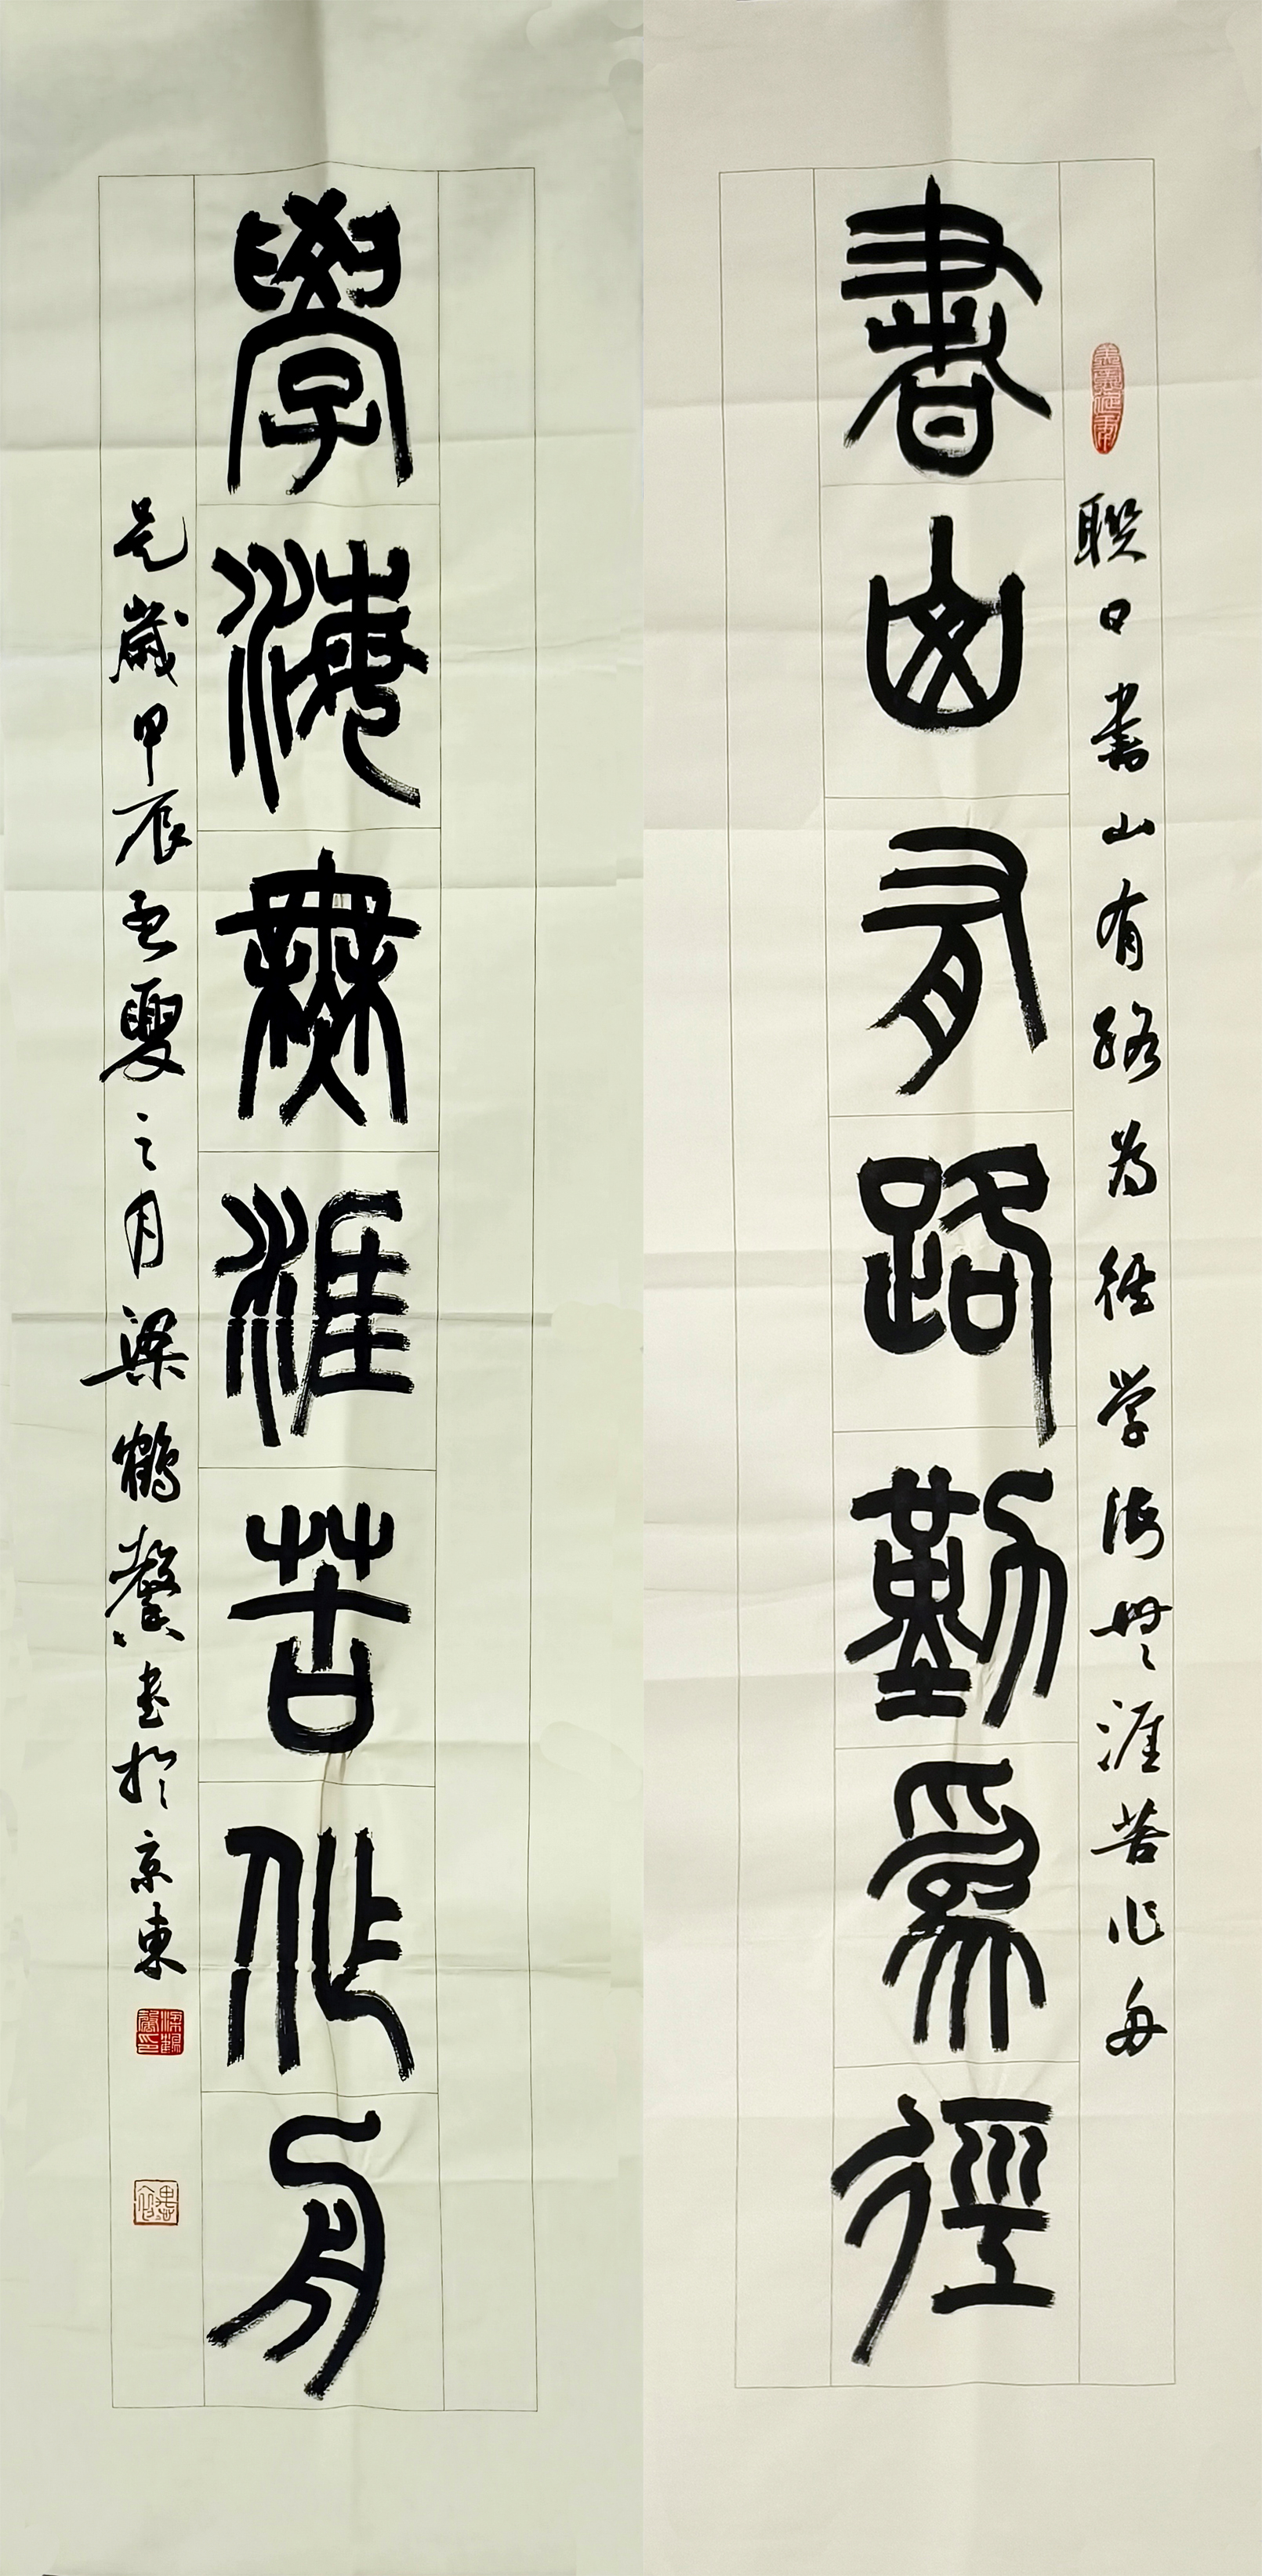 聯曰書山有路为径学海無涯苦作舟
書山有路勤為徑
學海無涯苦作舟
是歲甲辰孟夏之月梁鶴馨書於京東
梁鶴馨印